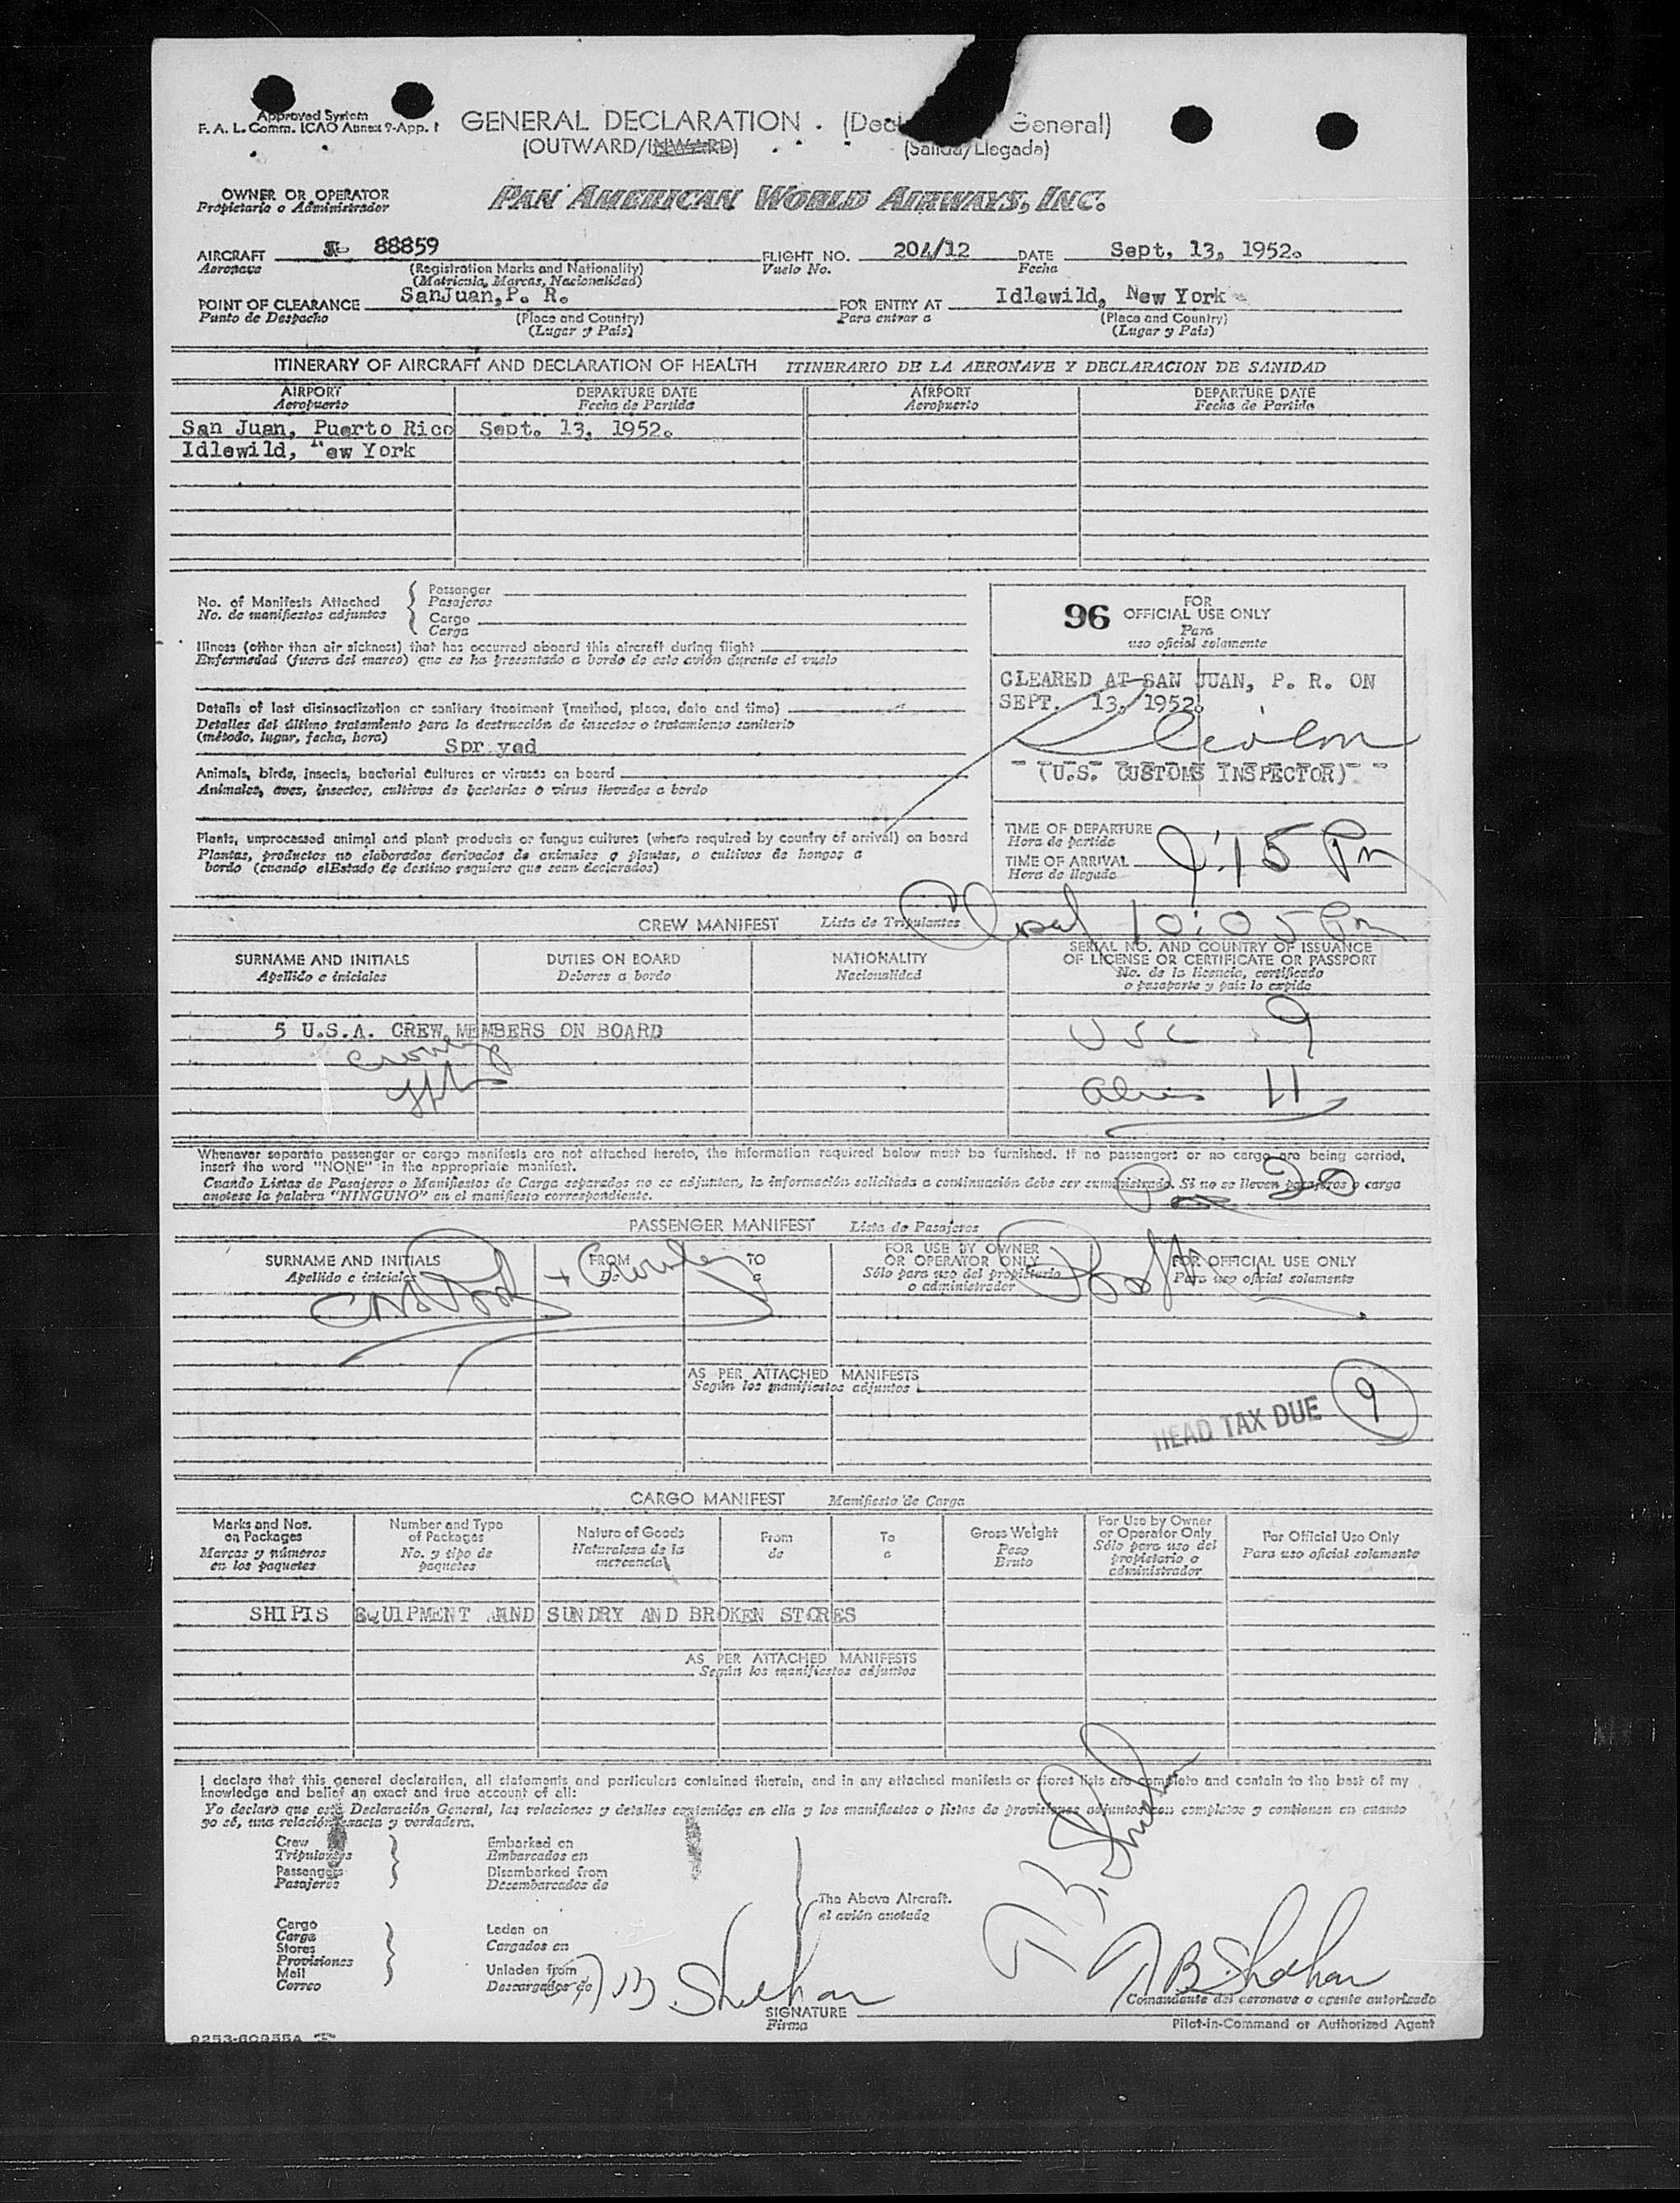 Approved System
F. A. L. Comm. ICAO Annex 9-App. 1
GENERAL DECLARATION . (Decl General)
(OUTWARD/INWARD) (Salida/Llegada)
OWNER OR OPERATOR
Propietario o Administrador
PAN AMERICAN WORLD AIRWAYS, INC.
AIRCRAFT 88859 FLIGHT NO. 204/12 DATE Sept. 13, 1952.
Aeronave (Registration Marks and Nationality) Vuelo No. Fecha
(Matricula, Marcas, Nacionalidad)
POINT OF CLEARANCE SanJuan,P. R. FOR ENTRY AT Idlewild, New York
Punto de Despacho (Place and Country) Para entrar a (Place and Country)
(Lugar y Pais) (Lugar y Pais)
ITINERARY OF AIRCRAFT AND DECLARATION OF HEALTH ITINERARIO DE LA AERONAVE Y DECLARACION DE SANIDAD
AIRPORT DEPARTURE DATE AIRPORT DEPARTURE DATE
Aeropuerto Fecha de Partida Aeropuerto Fecha de Partida
San Juan, Puerto Rico Sept. 13, 1952.
Idlewild, New York
No. of Manifests Attached
No. de manifiestos adjuntos
Passenger
Pasajeros
Cargo
Carga
Illness (other than air sickness) that has occurred aboard this aircraft during flight
Enfermedad (fuera del mareo) que se ha presentado a bordo de este avión durante el vuelo
Details of last disinsectization or sanitary treatment (method, place, date and time)
Detalles del último tratamiento para la destrucción de insectos o tratamiento sanitario
(método, lugar, fecha, hora)
Spr yed
Animals, birds, insects, bacterial cultures or viruses on board
Animales, aves, insectos, cultivos de bacterias o virus llevados a bordo
Plants, unprocessed animal and plant products or fungus cultures (where required by country of arrival) on board
Plantas, productos no elaborados derivados de animales o plantas, o cultivos de hongos a
bordo (cuando elEstado de destino requiere que sean declarados)
96 FOR
OFFICIAL USE ONLY
Para
uso oficial solamente
CLEARED AT SAN JUAN, P. R. ON
SEPT. 13, 1952.
(U.S. CUSTOMS INSPECTOR)
TIME OF DEPARTURE
Hora de partida
TIME OF ARRIVAL
Hora de llegada
9:15 Pm
10:05 Pm
CREW MANIFEST Lista de Tripulantes
SURNAME AND INITIALS DUTIES ON BOARD NATIONALITY SERIAL NO. AND COUNTRY OF ISSUANCE
OF LICENSE OR CERTIFICATE OR PASSPORT
Apellido e iniciales Deberes a bordo Nacionalidad No. de la licencia, certificado
o pasaporte y pais lo expide
5 U.S.A. CREW MEMBERS ON BOARD
USC 9
Crowley
alien 11
Whenever separate passenger or cargo manifests are not attached hereto, the information required below must be furnished. If no passengers or no cargo are being carried,
insert the word "NONE" in the appropriate manifest.
Cuando Listas de Pasajeros o Manifiestos de Carga separados no se adjuntan, la información solicitada a continuación debe ser suministrada. Si no se lleven pasajeros o carga
anotese la palabra "NINGUNO" en el manifiesto correspondiente.
Pax 20
PASSENGER MANIFEST Lista de Pasajeros
SURNAME AND INITIALS FROM TO FOR USE BY OWNER
OR OPERATOR ONLY FOR OFFICIAL USE ONLY
Apellido e iniciales De a Sólo para uso del propietario
o administrador Para uso oficial solamente
+ Crowley
AS PER ATTACHED MANIFESTS
Según los manifiestos adjuntos
HEAD TAX DUE 9
CARGO MANIFEST Manifiesto de Carga
Marks and Nos.
on Packages
Marcas y números
en los paquetes
Number and Type
of Packages
No. y tipo de
paquetes
Nature of Goods
Naturaleza de la
mercancia
From
de
To
a
Gross Weight
Peso
Bruto
For Use by Owner
or Operator Only
Sólo para uso del
propietario o
administrador
For Official Use Only
Para uso oficial solamente
SHIPIS EQUIPMENT AND SUNDRY AND BROKEN STORES
AS PER ATTACHED MANIFESTS
Según los manifiestos adjuntos
I declare that this general declaration, all statements and particulars contained therein, and in any attached manifests or stores lists are complete and contain to the best of my
knowledge and belief an exact and true account of all:
Yo declaro que esta Declaración General, las relaciones y detalles contenidos en ella y los manifiestos o listas de provisiones adjuntos son completos y contienen en cuanto
yo sé, una relación exacta y verdadera.
Crew
Tripulantes
Passengers
Pasajeros
Embarked on
Embarcados en
Disembarked from
Desembarcados de
The Above Aircraft.
el avión anotado
Cargo
Carga
Stores
Provisiones
Mail
Correo
Laden on
Cargados en
Unladen from
Descargados de
B. Sheehan
B. Sheehan
B Sheehan
SIGNATURE
Firma
Comandante del aeronave o agente autorizado
Pilot-in-Command or Authorized Agent
9253-60955A